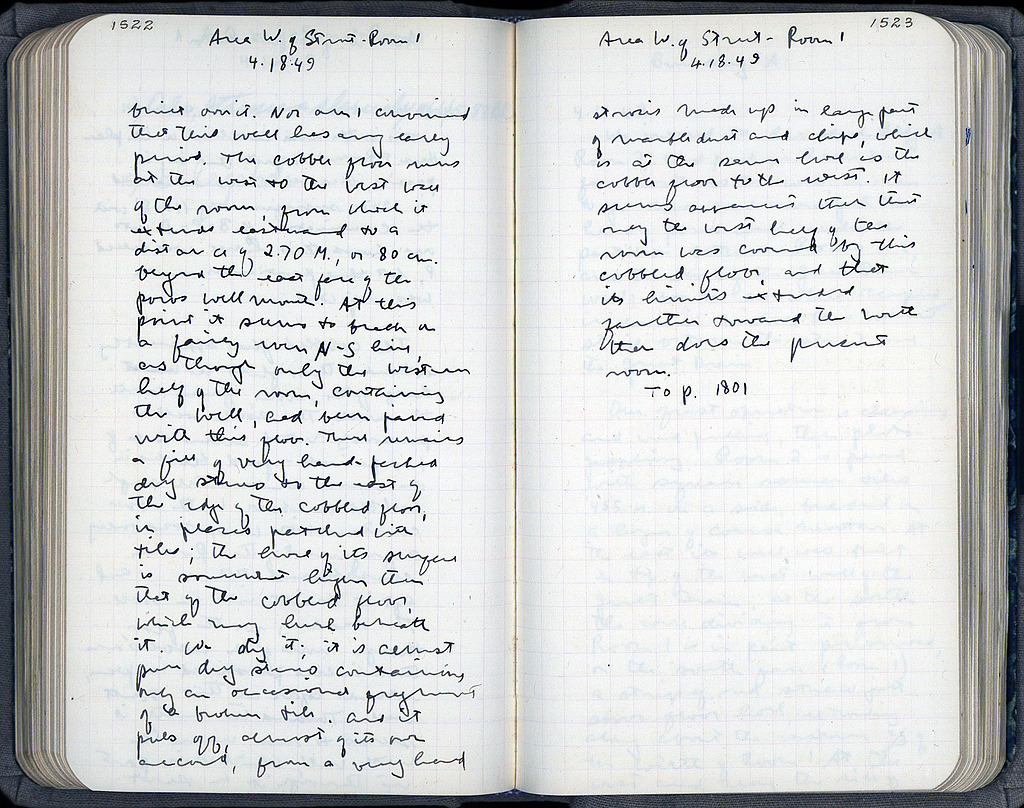 1522
Area W. of Street - Room 1
4.18.49
built over it. Nor am I convinced
that this well has any early
period. The cobble floor runs
at the west to the west wall
of the room, from which it
extends eastward to a
distance of 2.70 M., or 80 cm.
beyond the east face of the
poros well mouth. At this
point it seems to break in
a fairly even N-S line,
as though only the western
half of the room, containing
the well, had been paved
with this floor. There remains
a fill of very hard-packed
dry stereo to the east of
the edge of the cobbled floor,
in places patched with
tiles; the level of its surface
is somewhat higher than
that of the cobbled floor,
which may lurk beneath
it. We dig it; it is almost
pure dry stereo containing
only an occasional fragment
of a broken tile. and it
pulls off, almost of its own
accord, from a very hard
1523
Area W. of Street - Room 1
4.18.49
stereo made up in large part
of marble dust and chips, which
is at the same level as the
cobble floor to the west. It
seems apparent then that
only the west half of the
room was covered by this
cobbled floor, and that
its limits extended
farther toward the north
than does the present
room.
To p. 1801